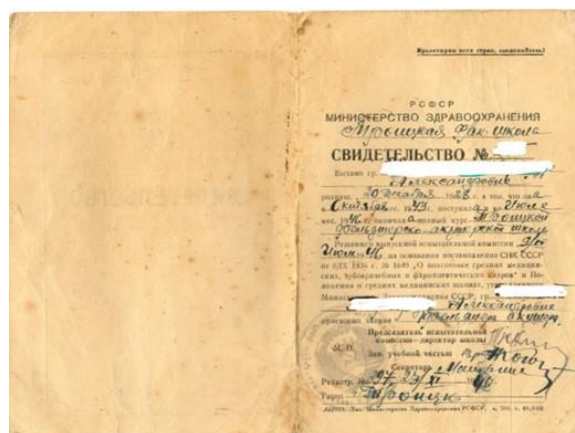 Пролетарии всех стран, соединяйтесь!
РСФСР
МИНИСТЕРСТВО ЗДРАВООХРАНЕНИЯ
Троицкая Фак школа
СВИДЕТЕЛЬСТВО №
Выдано гр.
Александровне
родивш. 20 декабря 1928 г. в том, что он а
Сентября 43 поступил а и Июля
мес. 1946 окончил а полный курс Троицкой
фельдшерско-акушерской школы
Решением выпускной испытательной комиссии от
Июля 46 на основании постановления СНК СССР
от 8/IX 1936 г. № 1649 „О подготовке средних медицин-
ских, зубоврачебных и фармацевтических кадров" и По-
ложения о средних медицинских школах,
СССР, гр.
Александровне
присвоено звание акушера
Председатель испытательной
комиссии—директор школы
М. П.
Зав. учебной частью
Секретарь
Регистр. № 97 23/XI 1946
Город Троицк
Тип. Министерства Здравоохранения РСФСР